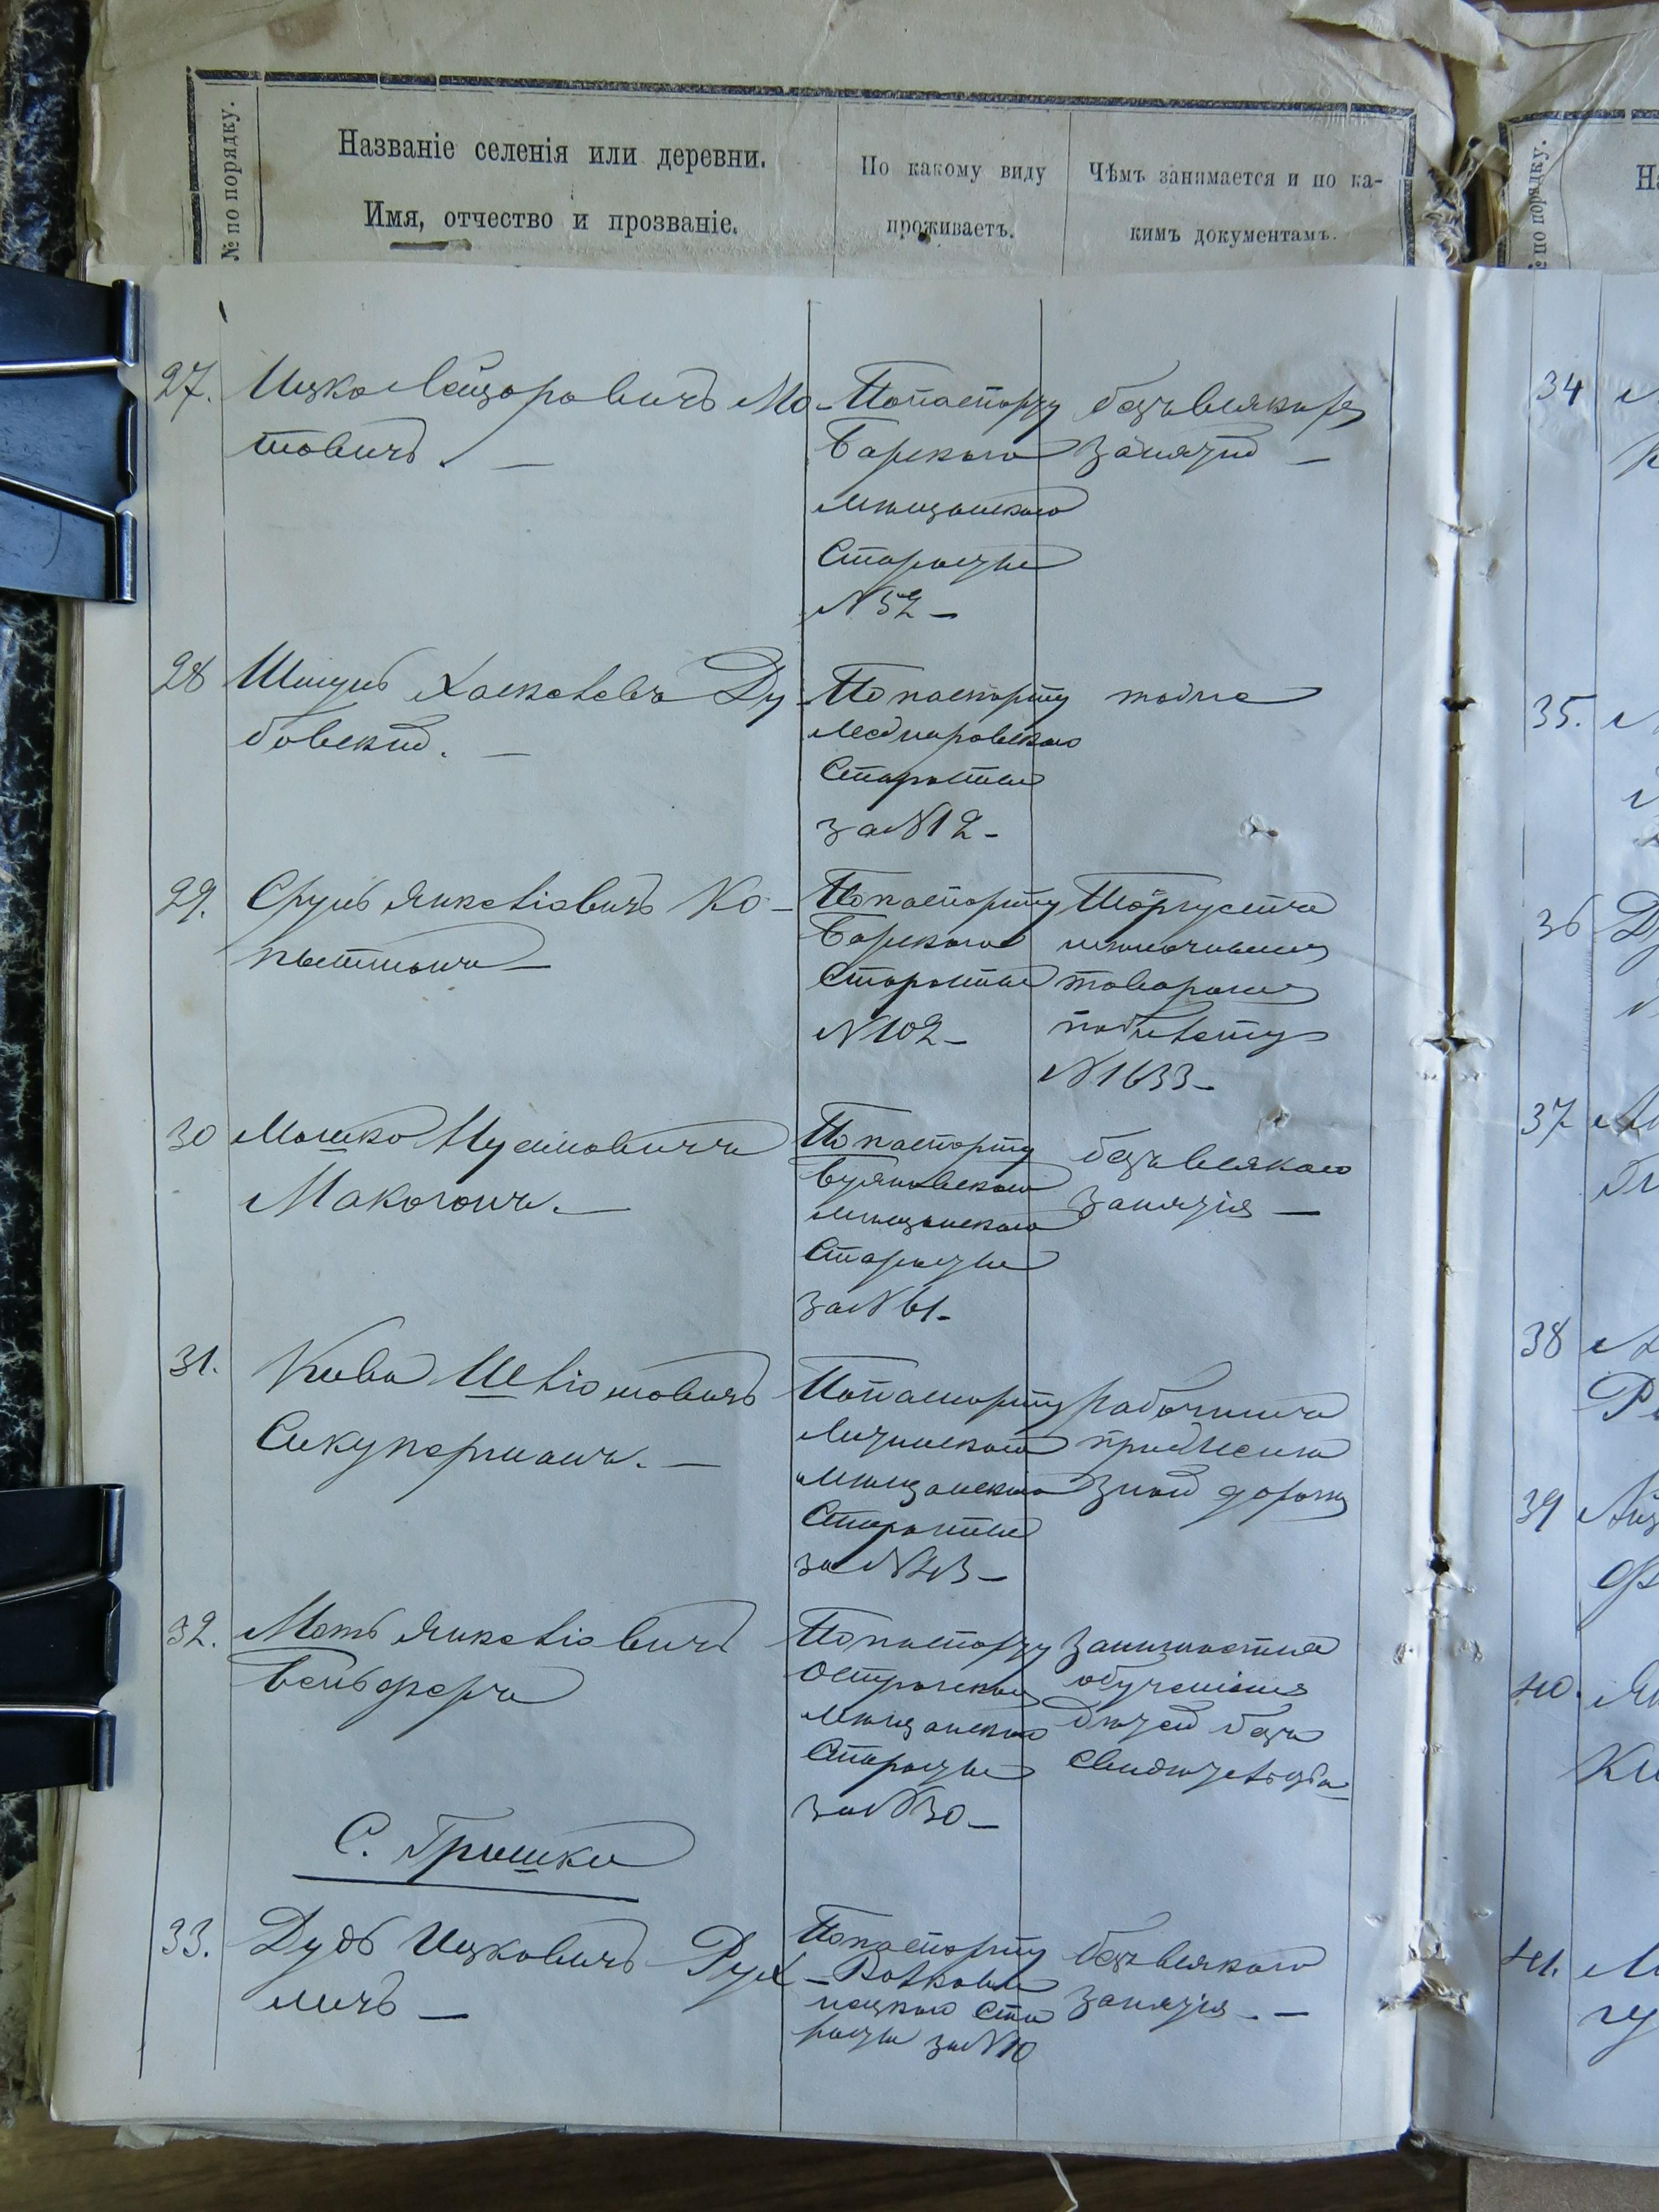 № по порядку.
Названіе селенія или деревни.
Имя, отчество и прозваніе.
По какому виду
проживаетъ.
Чѣмъ занимается и по ка-
кимъ документамъ.
27.
Ицко Лейзоровичъ Мо-
товичъ. —
По паспорту
Барскаго
мѣщанскаго
Старосты
№ 52 —
безъ всякаго
занятій —
28
Шмуль Хаскелевъ Ду-
бовскій. —
По паспорту
Старосты
за № 12 —
тоже
29.
Сруль Янкеліовичъ Ко-
По паспорту
Барскаго
Старосты
№ 102 —
Торгуетъ
мѣлочнымъ
товаромъ
по билету
№ 1633 —
30
Мошко Нусимовичъ
Макогонъ. —
По паспорту
мѣщанскаго
Старосты
за № 61 —
безъ всякаго
занятія —
31.
Кива Шліомовичъ
Сикуперманъ. —
По паспорту
мѣщанскаго
Старосты
за № 43 —
Рабочимъ
при желѣ
зной дороги
32.
Моть Янкеліовичъ
Вельферъ
По паспорту
Острожскаго
мѣщанскаго
Старосты
за № 30 —
занимается
обученіемъ
дѣтей безъ
свидѣтельства
С. Гришки
33.
Дудь Ицковичъ Рух-
личъ —
По паспорту
Волкови
нецкаго Ста
росты за № 10
безъ всякаго
занятія. —
№ по порядку.
34
35.
36
37
38
39
40.
41.